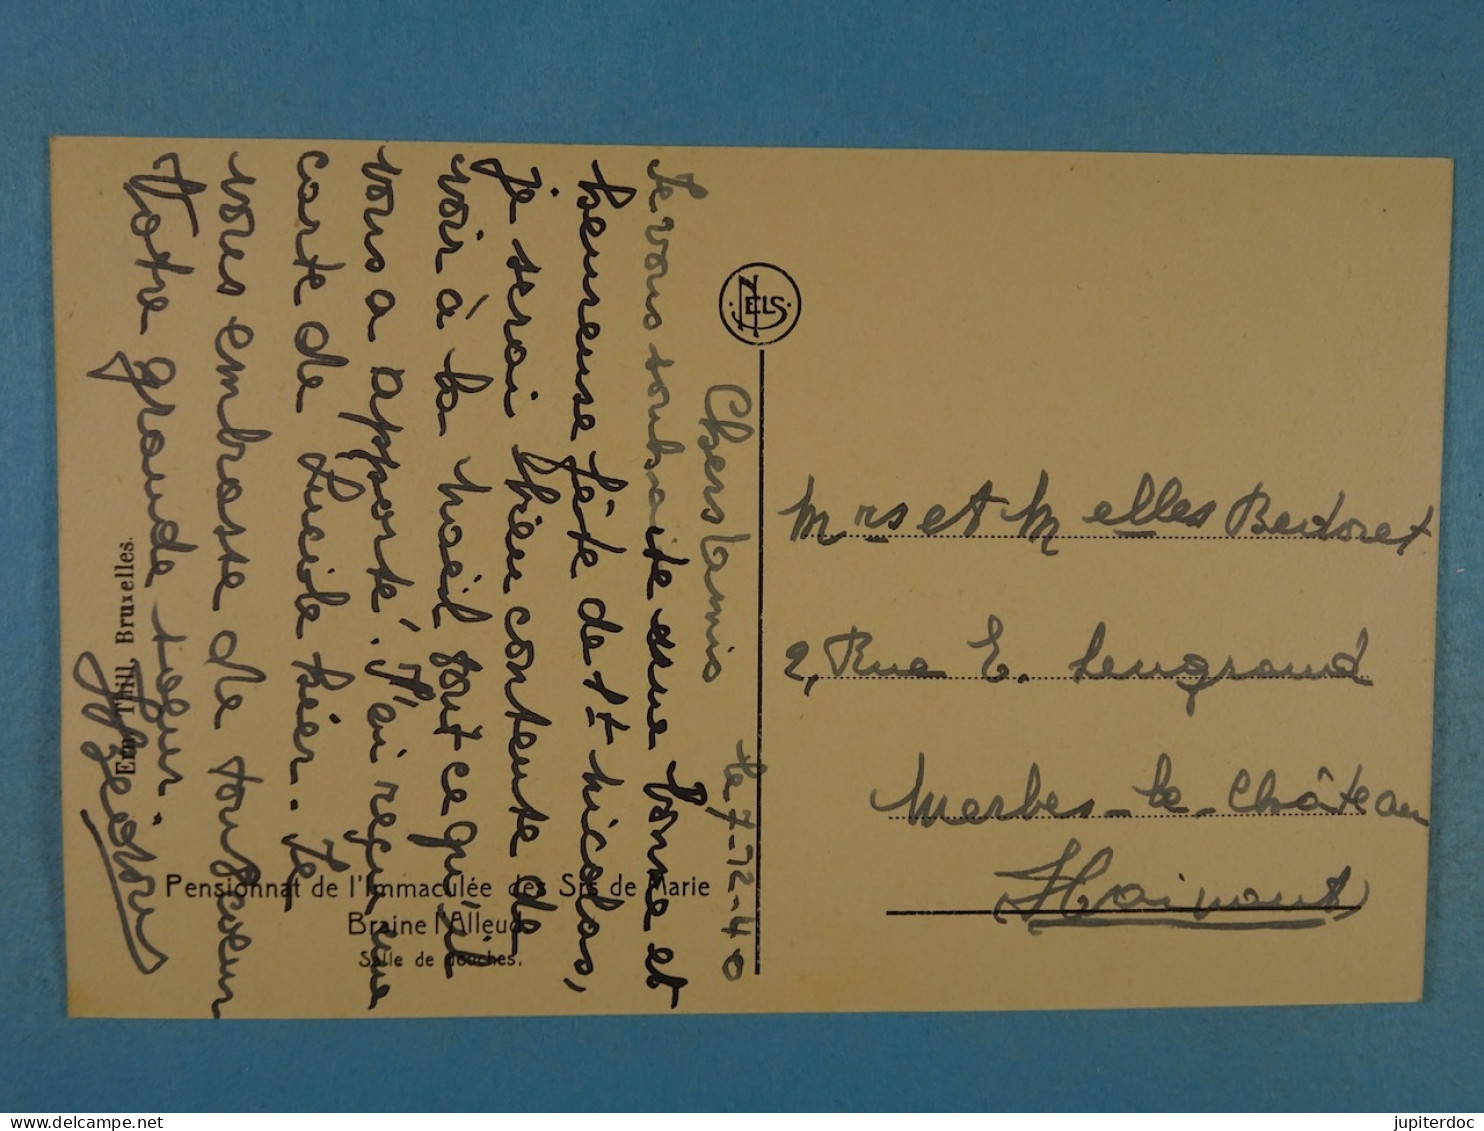 le 7-12-40
Chers tamis
Je vous souhaite une bonne et
heureuse fête de St nicolas,
je serai bien contente de
voir à la noël tout ce qu'il
vous a apporté. J'ai reçu une
carte de Lucile hier. Je
vous embrasse de tout coeur
Votre grande soeur.
NELS
Mrs et Melles Bedoret
2, Rue E. Lengrand
Merbes-le-Château
Hainaut
Pensionnat de l'Immaculée des Srs de Marie
Braine l'Alleud
Salle de Douches.
Ern. Thill, Bruxelles.
jupiterdoc